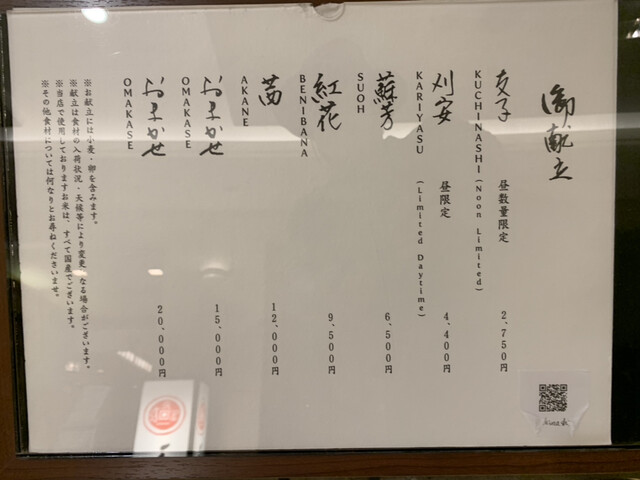 御献立
支子 昼数量限定 2,750円
KUCHINASHI (Noon Limited)
刈安 昼限定 4,400円
KARIYASU (Limited Daytime)
蘇芳 6,500円
SUOH
紅花 9,500円
BENIBANA
茜 12,000円
AKANE
おまかせ 15,000円
OMAKASE
おまかせ 20,000円
OMAKASE
※お献立には小麦・卵を含みます。
※献立は食材の入荷状況・天候等により変更になる場合がございます。
※当店で使用しておりますお米は、すべて国産でございます。
※その他食材については何なりとお尋ねくださいませ。